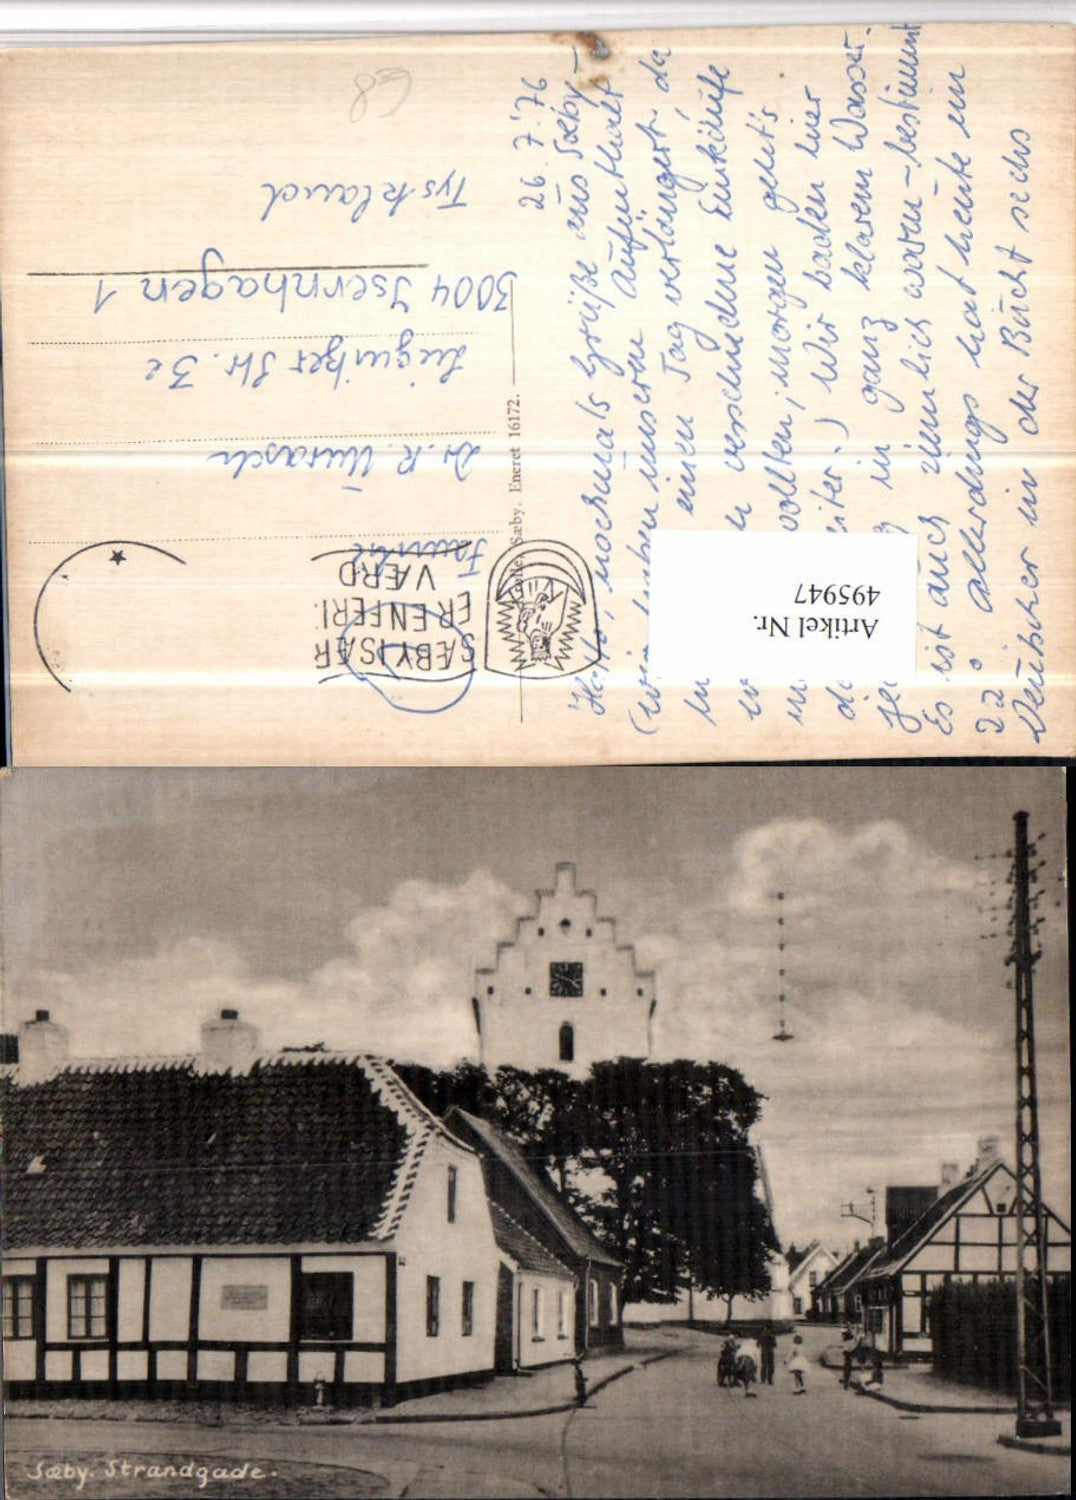 E8
26.7.'76
Hallo, nochmals Grüße aus Sæby –
(wir haben unseren Aufenthalt
einen Tag verlängert, da
verschiedene Einkäufe
wollten, morgen geht's
.) Wir baden hier
in ganz klarem Wasser.
Es ist auch ziemlich warm – bestimmt
22° allerdings hat heute in
der Bucht sechs
Familie
Dr. R.
Str. 3c
3004 Isernhagen 1
Tyskland
SÆBY ISÆR
ER EN FERI
VÆRD
Sæby. Eneret 16172.
Artikel Nr.
495947
Sæby. Strandgade.